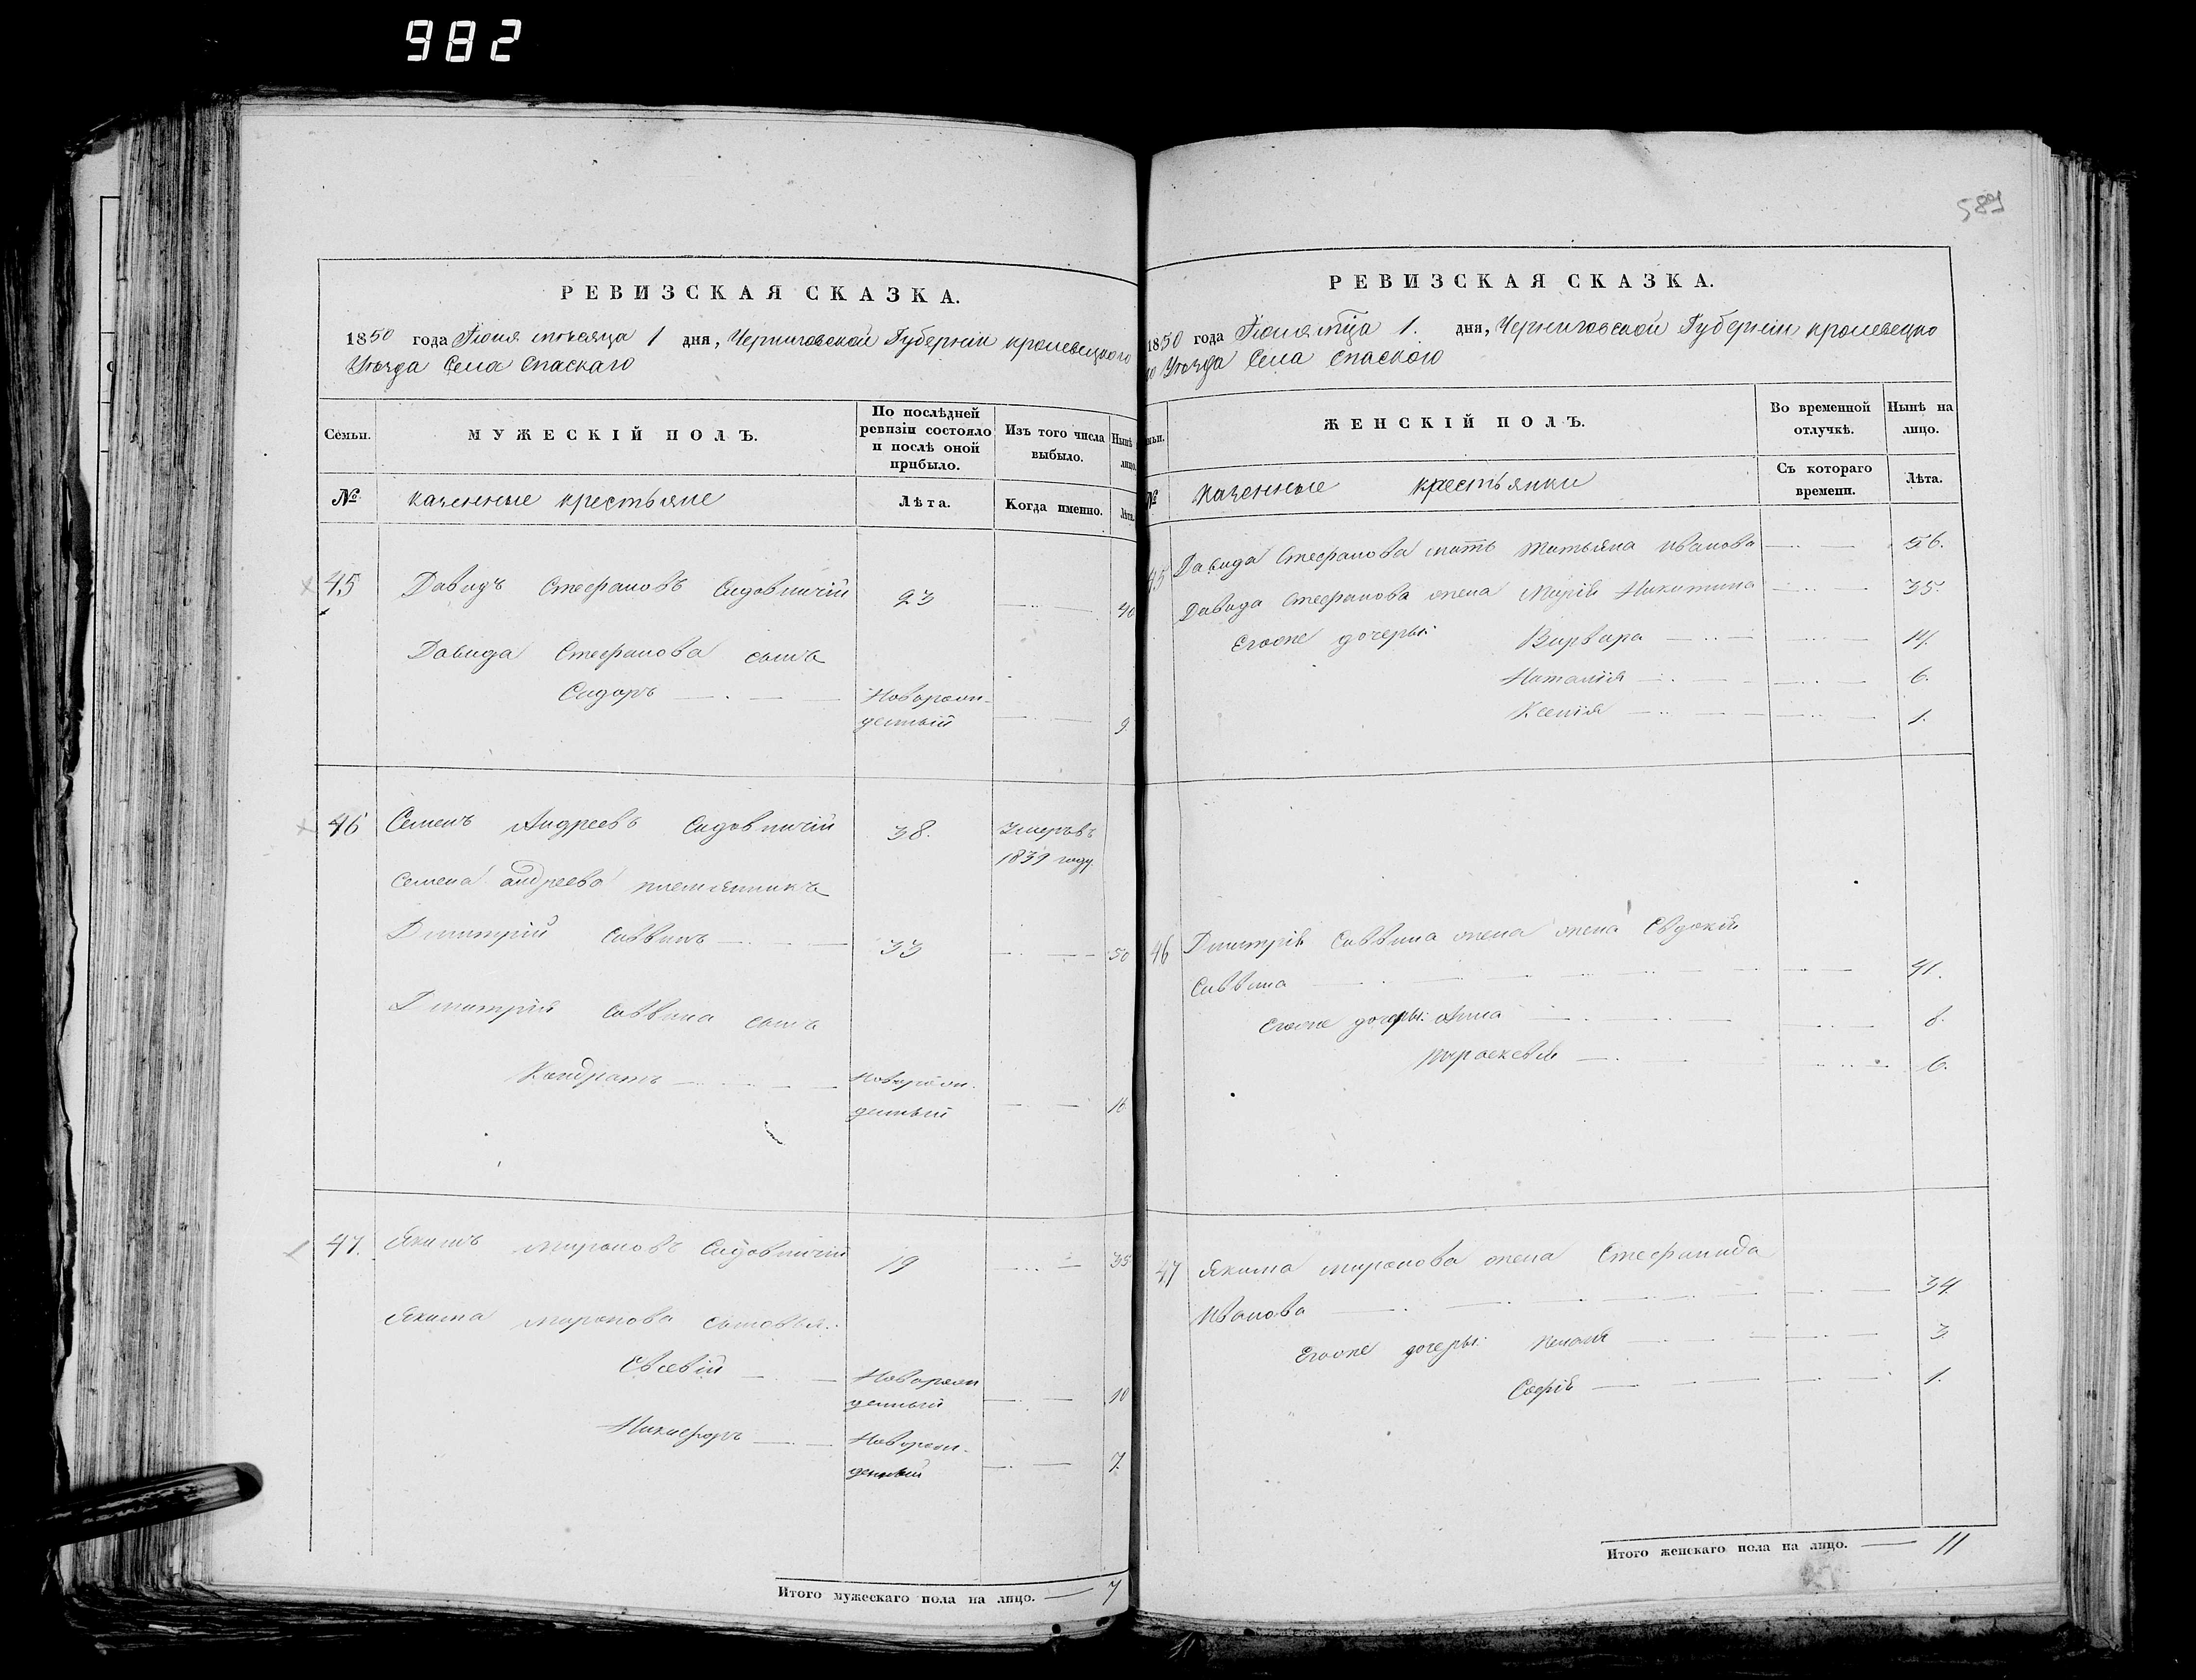 982
РЕВИЗСКАЯ СКАЗКА.
1850 года Іюня мѣсяца 1 дня, Черниговской Губерніи кролевецкого
Уѣзда Села Спаскаго
Семьи.
МУЖЕСКІЙ ПОЛЪ.
По послѣдней ревизіи состояло и послѣ оной прибыло.
Изъ того числа выбыло.
Нынѣ
лицо.
№
казенные крестьяне
Лѣта.
Когда именно.
Лѣта.
45 Давидъ Стефановъ Садовничій 23 40
Давида Стефанова сынъ
Сидоръ Новорож-
денный 9
46 Семенъ Андреевъ Садовничій 38. Умеръ въ
1839 году.
Семена андреева племянникъ
Дмитрій Саввинъ 33 50
Дмитрія Саввина сынъ
Кондратъ Новорож-
денный 16
47. Якимъ Мироновъ Садовничій 19 35
Якима Миронова сыновья:
Евсевій Новорож
денный 10
Никифоръ Новорож-
денный 7.
Итого мужескаго пола на лицо. 7
589
РЕВИЗСКАЯ СКАЗКА.
1850 года Іюня мца 1. дня, Черниговской Губерніи кролевецко
го Уѣзда Села Спаского
ЖЕНСКІЙ ПОЛЪ.
Во временной отлучкѣ.
Нынѣ на лицо.
№
казенные крестьянки
Съ котораго времени.
Лѣта.
45 Давида Стефанова мать Татьяна Иванова 56.
Давида Стефанова жена Марія Никитина 35.
Егоже дочеры: Варвара 14.
Наталія 6.
Ксенія 1.
46 Дмитрія Саввина жена жена Евдокія
Саввина 41.
Егоже дочеры: Анна 8.
Параскевія 6.
47 Якима Миронова жена Стефанида
Иванова 34.
Егоже дочеры: 3
Софія 1.
Итого женскаго пола на лицо. 11